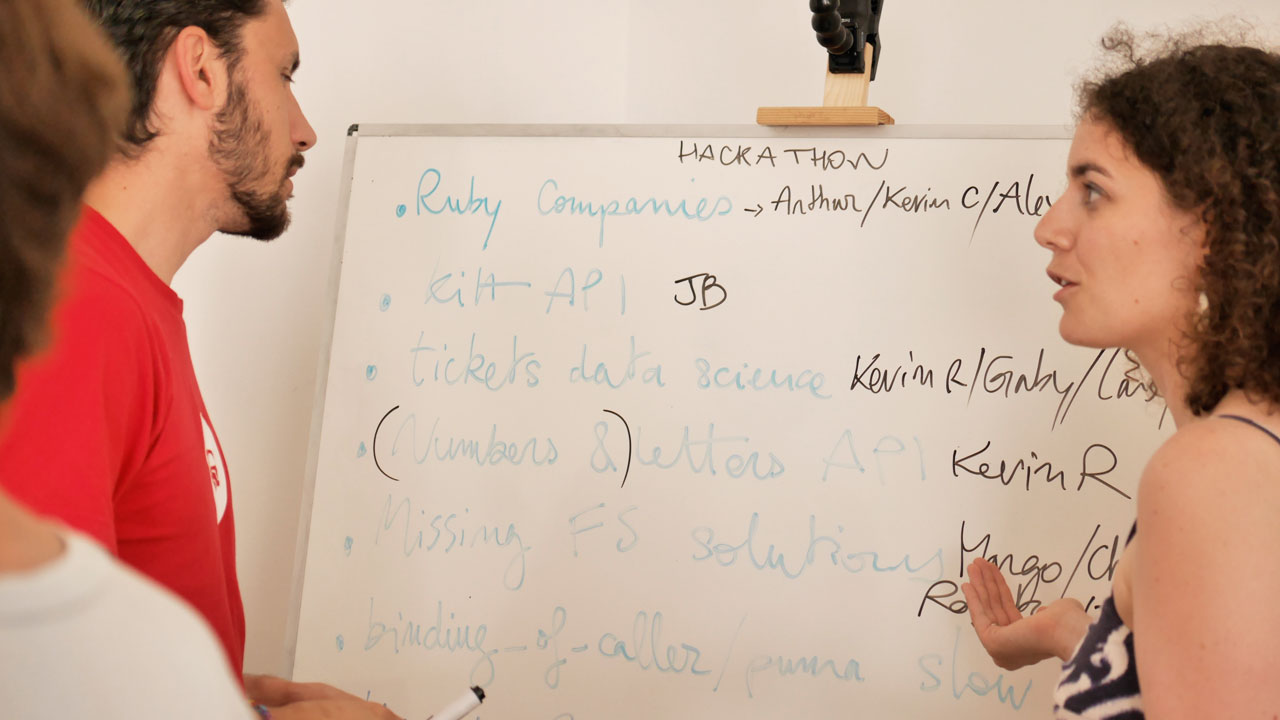 HACKATHON
• Ruby Companies → Arthur/Kevin C/Alex
• Kitt API JB
• tickets data science Kevin R/Gaby/
• (Numbers &) letters API Kevin R
• Missing FS solutions Margo/Ch
• binding-of-caller/puma slow